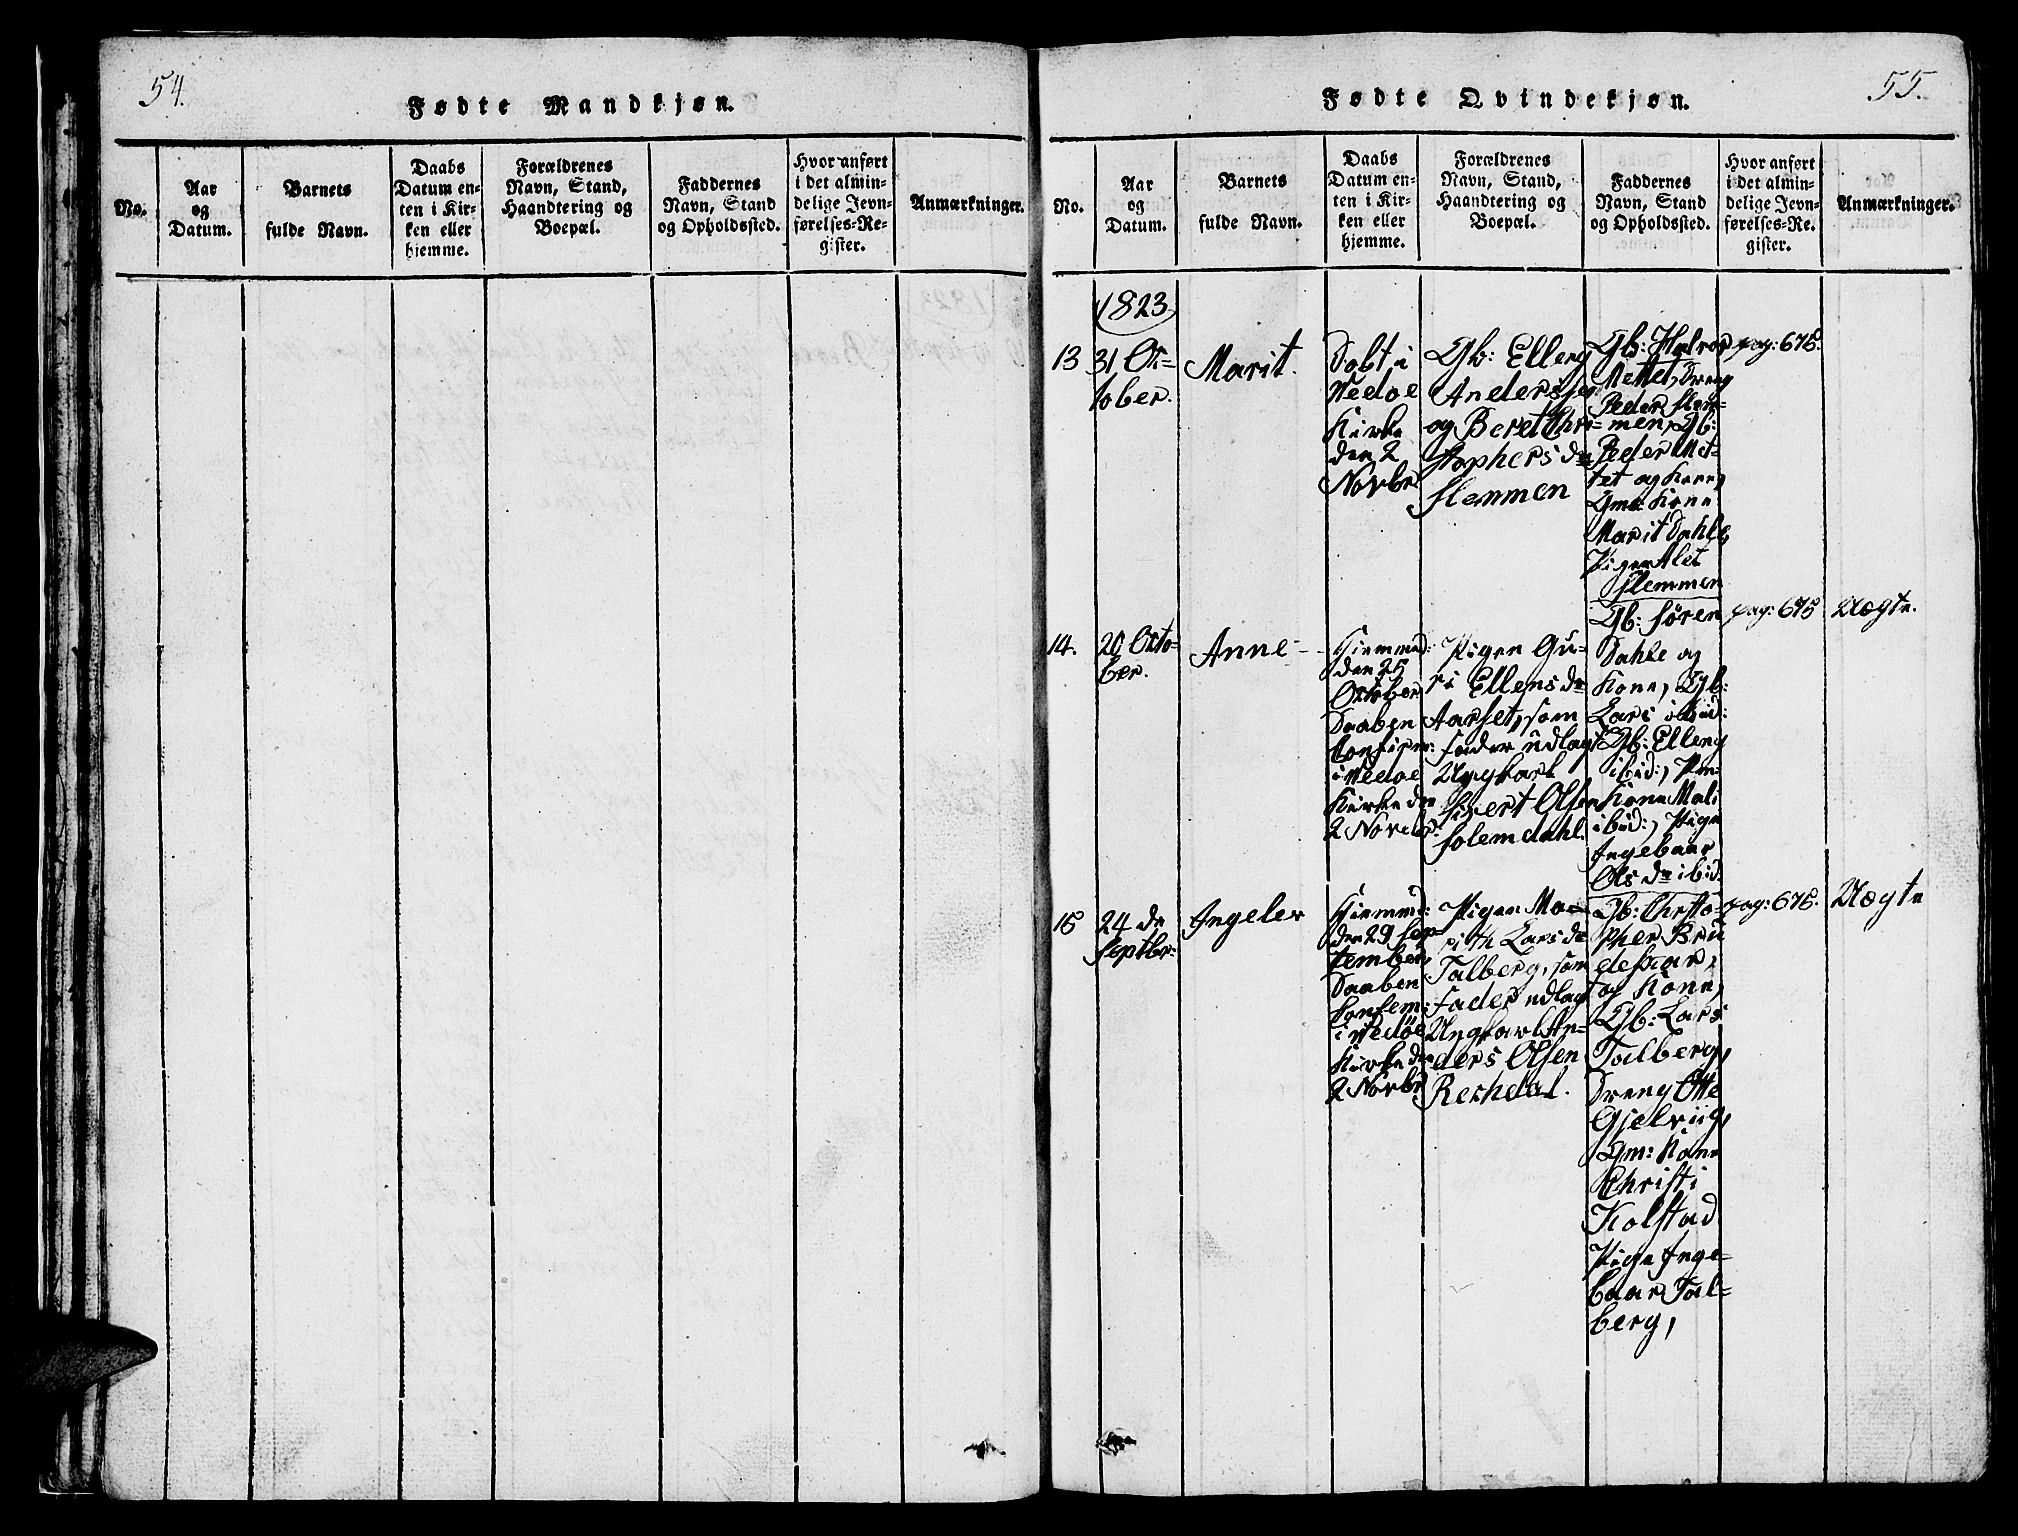 54.
Fødte Mandkjøn.
No.
Aar
og
Datum.
Barnets
fulde Navn.
Daabs
Datum en-
ten i Kir-
ken eller
hjemme.
Forældrenes
Navn, Stand,
Haandtering og
Boepæl.
Faddernes
Navn, Stand
og Opholdssted.
Hvor anført
i det almin-
delige Jevn-
førelses-Re-
gister.
Anmærkninger.
55.
Fødte Qvindekjøn.
No.
Aar
og
Datum.
Barnets
fulde Navn.
Daabs
Datum en-
ten i Kir-
ken eller
hjemme.
Forældrenes
Navn, Stand,
Haandtering og
Boepæl.
Faddernes
Navn, Stand
og Opholdssted.
Hvor anført
i det almin-
delige Jevn-
førelses-Re-
gister.
Anmærkninger.
1823
13
31 Oc-
tober.
Marit.
Døbt i
Vedøe
Kirke
den 2
Novbr
Gb: Elleng
Anders
og Beret Chri-
stophersdr
Flemmen
Gb: Halvor
Mettet, Dreng
Peder Flem-
men, Gb:
Peder Met-
tet og Kone,
Gm: Kone
Marit Dahle,
Pigen Alet
Flemmen
pag: 675.
14.
20 Octo-
ber.
Anne
Hiemmed:
den 25
October
Daaben
Confirm:
i Vedøe
Kirke den
2 Novbr.
Pigen Gu-
ri Ellensdr
Aarset, som
Fader udlagt
Ungkarl
Sivert Olsen
Solemdahl.
Gb: Søren
Dahle og
Kone, Gb:
Lars ibid:
Gb: Elleng
ibid:,
Kone Mali
ibid:, Pige
Ingebaar
Olsdr ibid.
pag: 675
Uægte.
15
24 de
Septbr:
Ingeler
Hiemmd:
den 29 Sep-
tember,
Daaben
i Vedøe
Kirke den
2 Novbr
Pigen Ma-
rith Larsdr
Talberg, som
Fader udlagt
Ungkarl An-
ders Olsen
Reshdal.
Gb: Christo-
pher Bru
og Kone,
Gb: Lars
Talberg,
Dreng Otte
Gjelviig,
Gm: Kone
Christi
Kolstad
Pige Inge-
baar Tal-
berg,
pag: 675.
Uægte